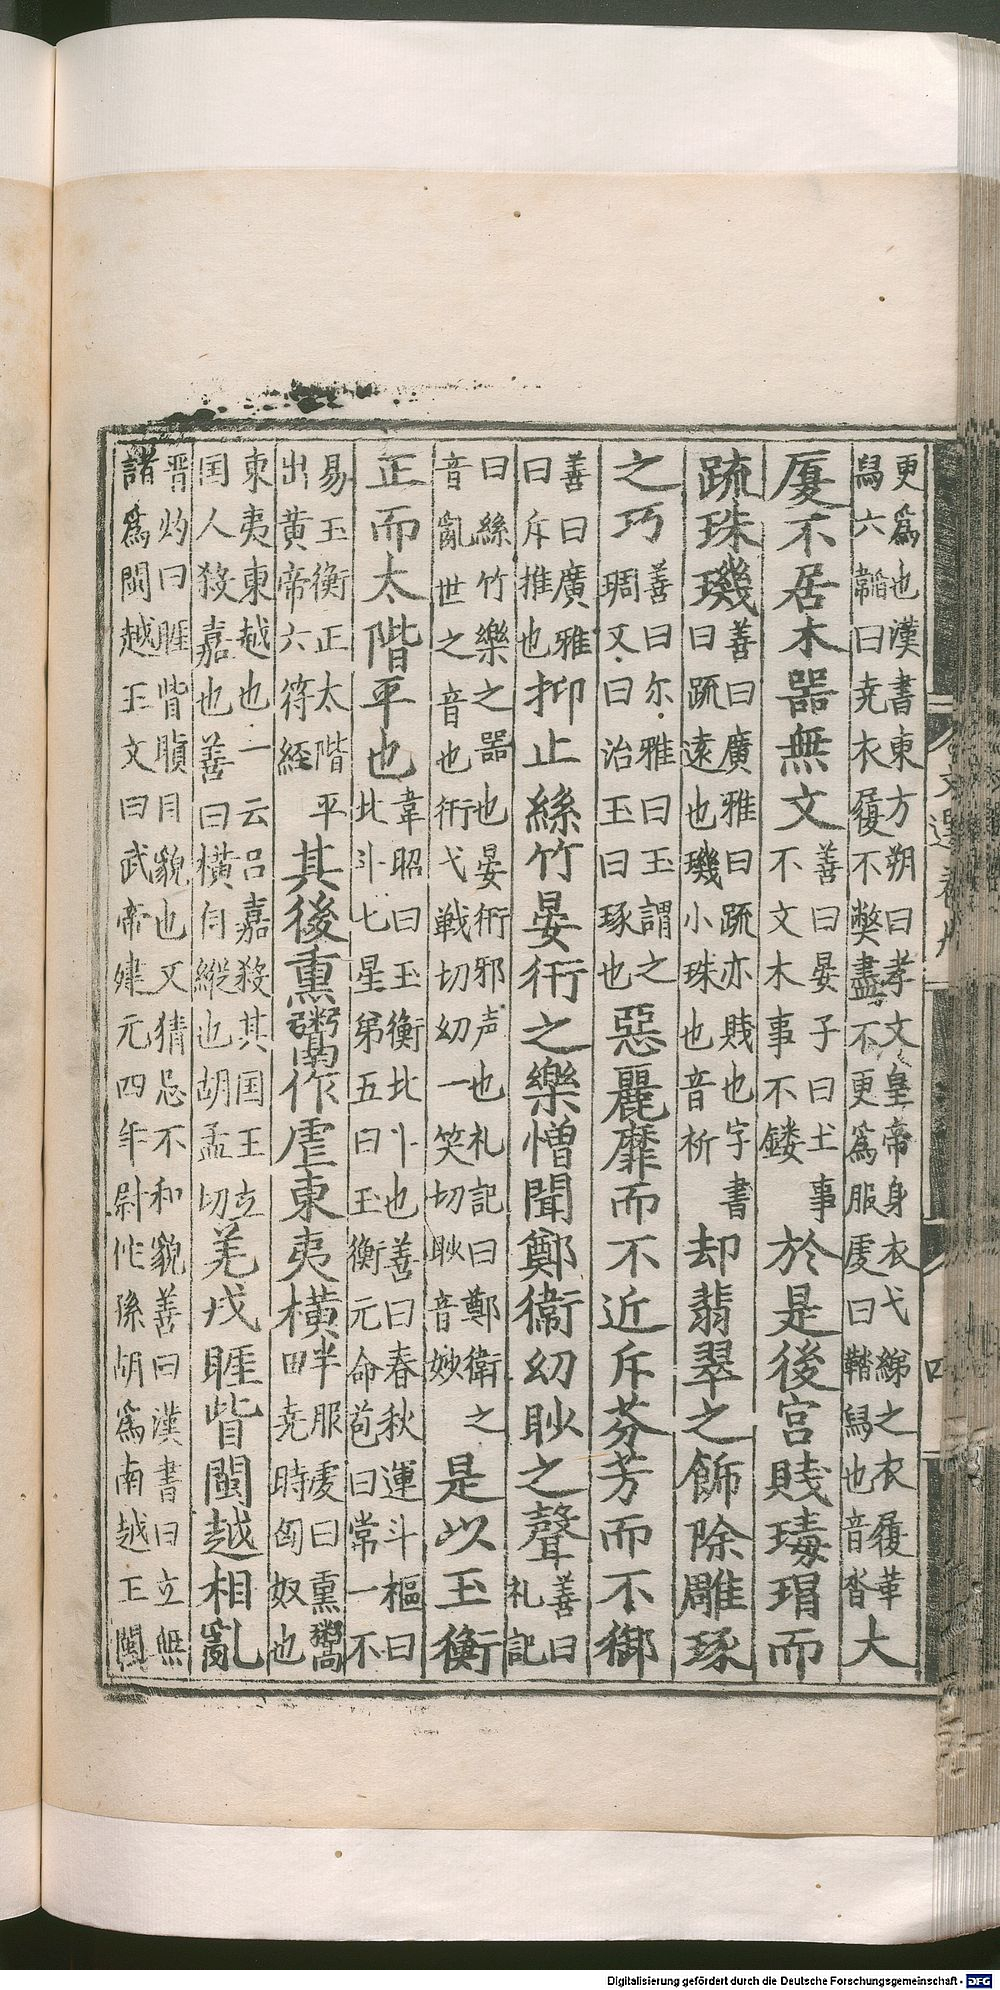 更爲也漢書東方朔曰孝文皇帝身衣弋綈之衣履革
舄六韜曰堯衣履不弊盡不更爲服虔曰鞜舄也音沓大
厦不居木器無文善曰晏子曰土事
不文木事不鏤於是後宮賤瑇瑁而
疏珠璣善曰廣雅曰疏亦賤也字書
曰疏遠也璣小珠也音祈却翡翠之飾除雕琢
之巧善曰尔雅曰玉謂之
琱又曰治玉曰琢也惡麗靡而不近斥芬芳而不御
善曰廣雅
曰斥推也抑止絲竹晏衍之樂憎聞鄭衞幼眇之聲善曰
礼記
曰絲竹樂之器也晏衍邪声也礼記曰鄭衛之
音亂世之音也衍弋戦切幼一笑切眇音妙是以玉衡
正而太階平也韋昭曰玉衡北斗也善曰春秋運斗樞曰
北斗七星第五曰玉衡元命苞曰常一不
易玉衡正太階平
出黄帝六符經其後熏鬻作虐東夷橫畔服虔曰熏鬻
堯時匈奴也
東夷東越也一云吕嘉殺其国王立
国人殺嘉也善曰橫自縱也胡孟切羌戎睚眥閩越相亂
晋灼曰睚眥瞋目貌也又猜忌不和貌善曰漢書曰立無
諸爲閩越王文曰武帝建元四年尉佗孫胡爲南越王閩
文選卷九
四
Digitalisierung gefördert durch die Deutsche Forschungsgemeinschaft - DFG